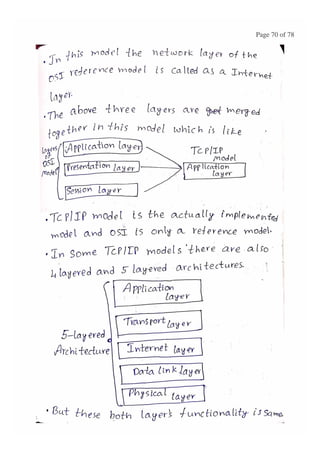 Page 70 of 78
• In this model the network layer of the
OSI reference model is called as a Internet
layer.
• The above three layers are merged
together in this model which is like
layers of OSI model
Application layer
Presentation layer
Session layer
TCP/IP model
Application layer
• TCP/IP model is the actually implemented
model and OSI is only a reference model.
• In Some TCP/IP models there are also
4 layered and 5 layered architectures.
5-layered Architecture
Application layer
Transport layer
Internet layer
Data link layer
Physical layer
• But these both layer's functionality is same